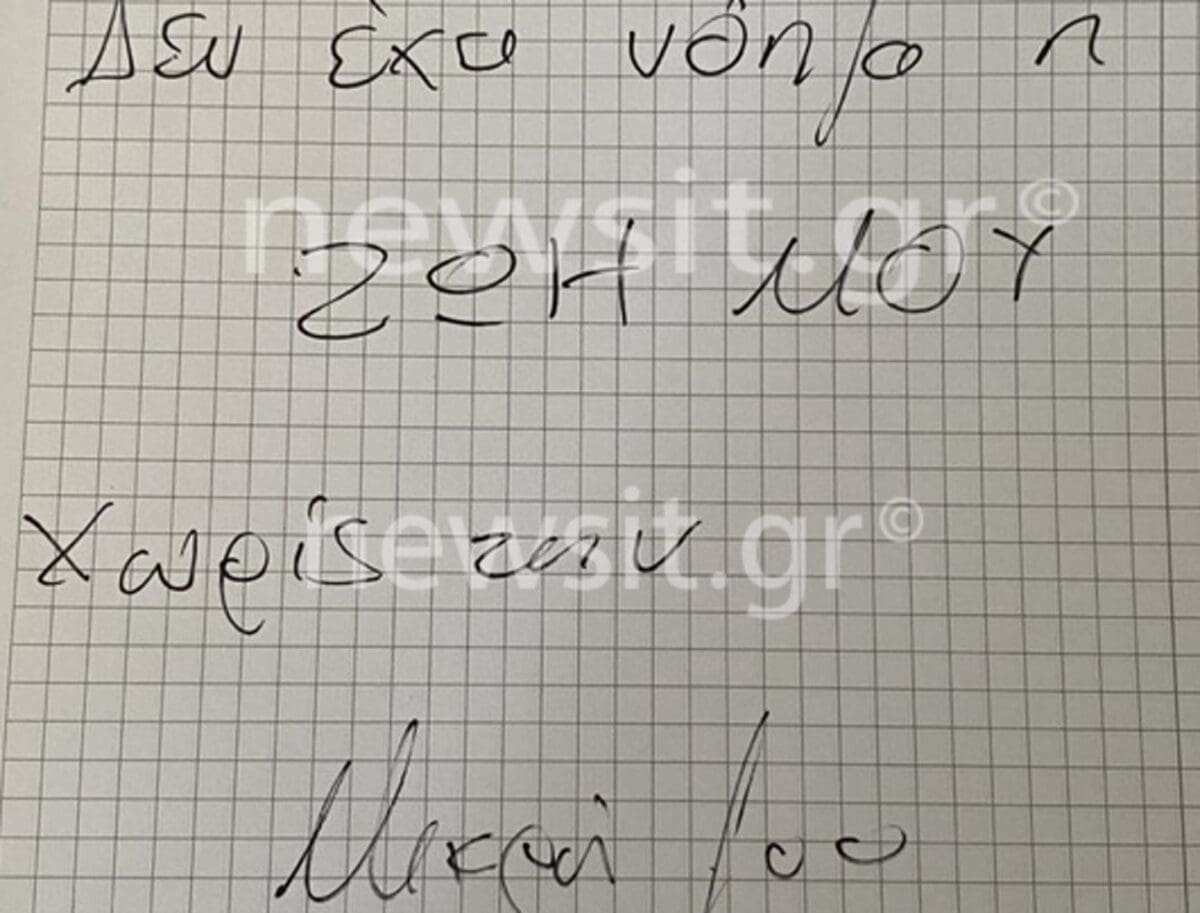 Δεν έχω νόημα η
ΖΩΗ ΜΟΥ
Χωρίς την
Μικρή μου
newsit.gr©
newsit.gr©